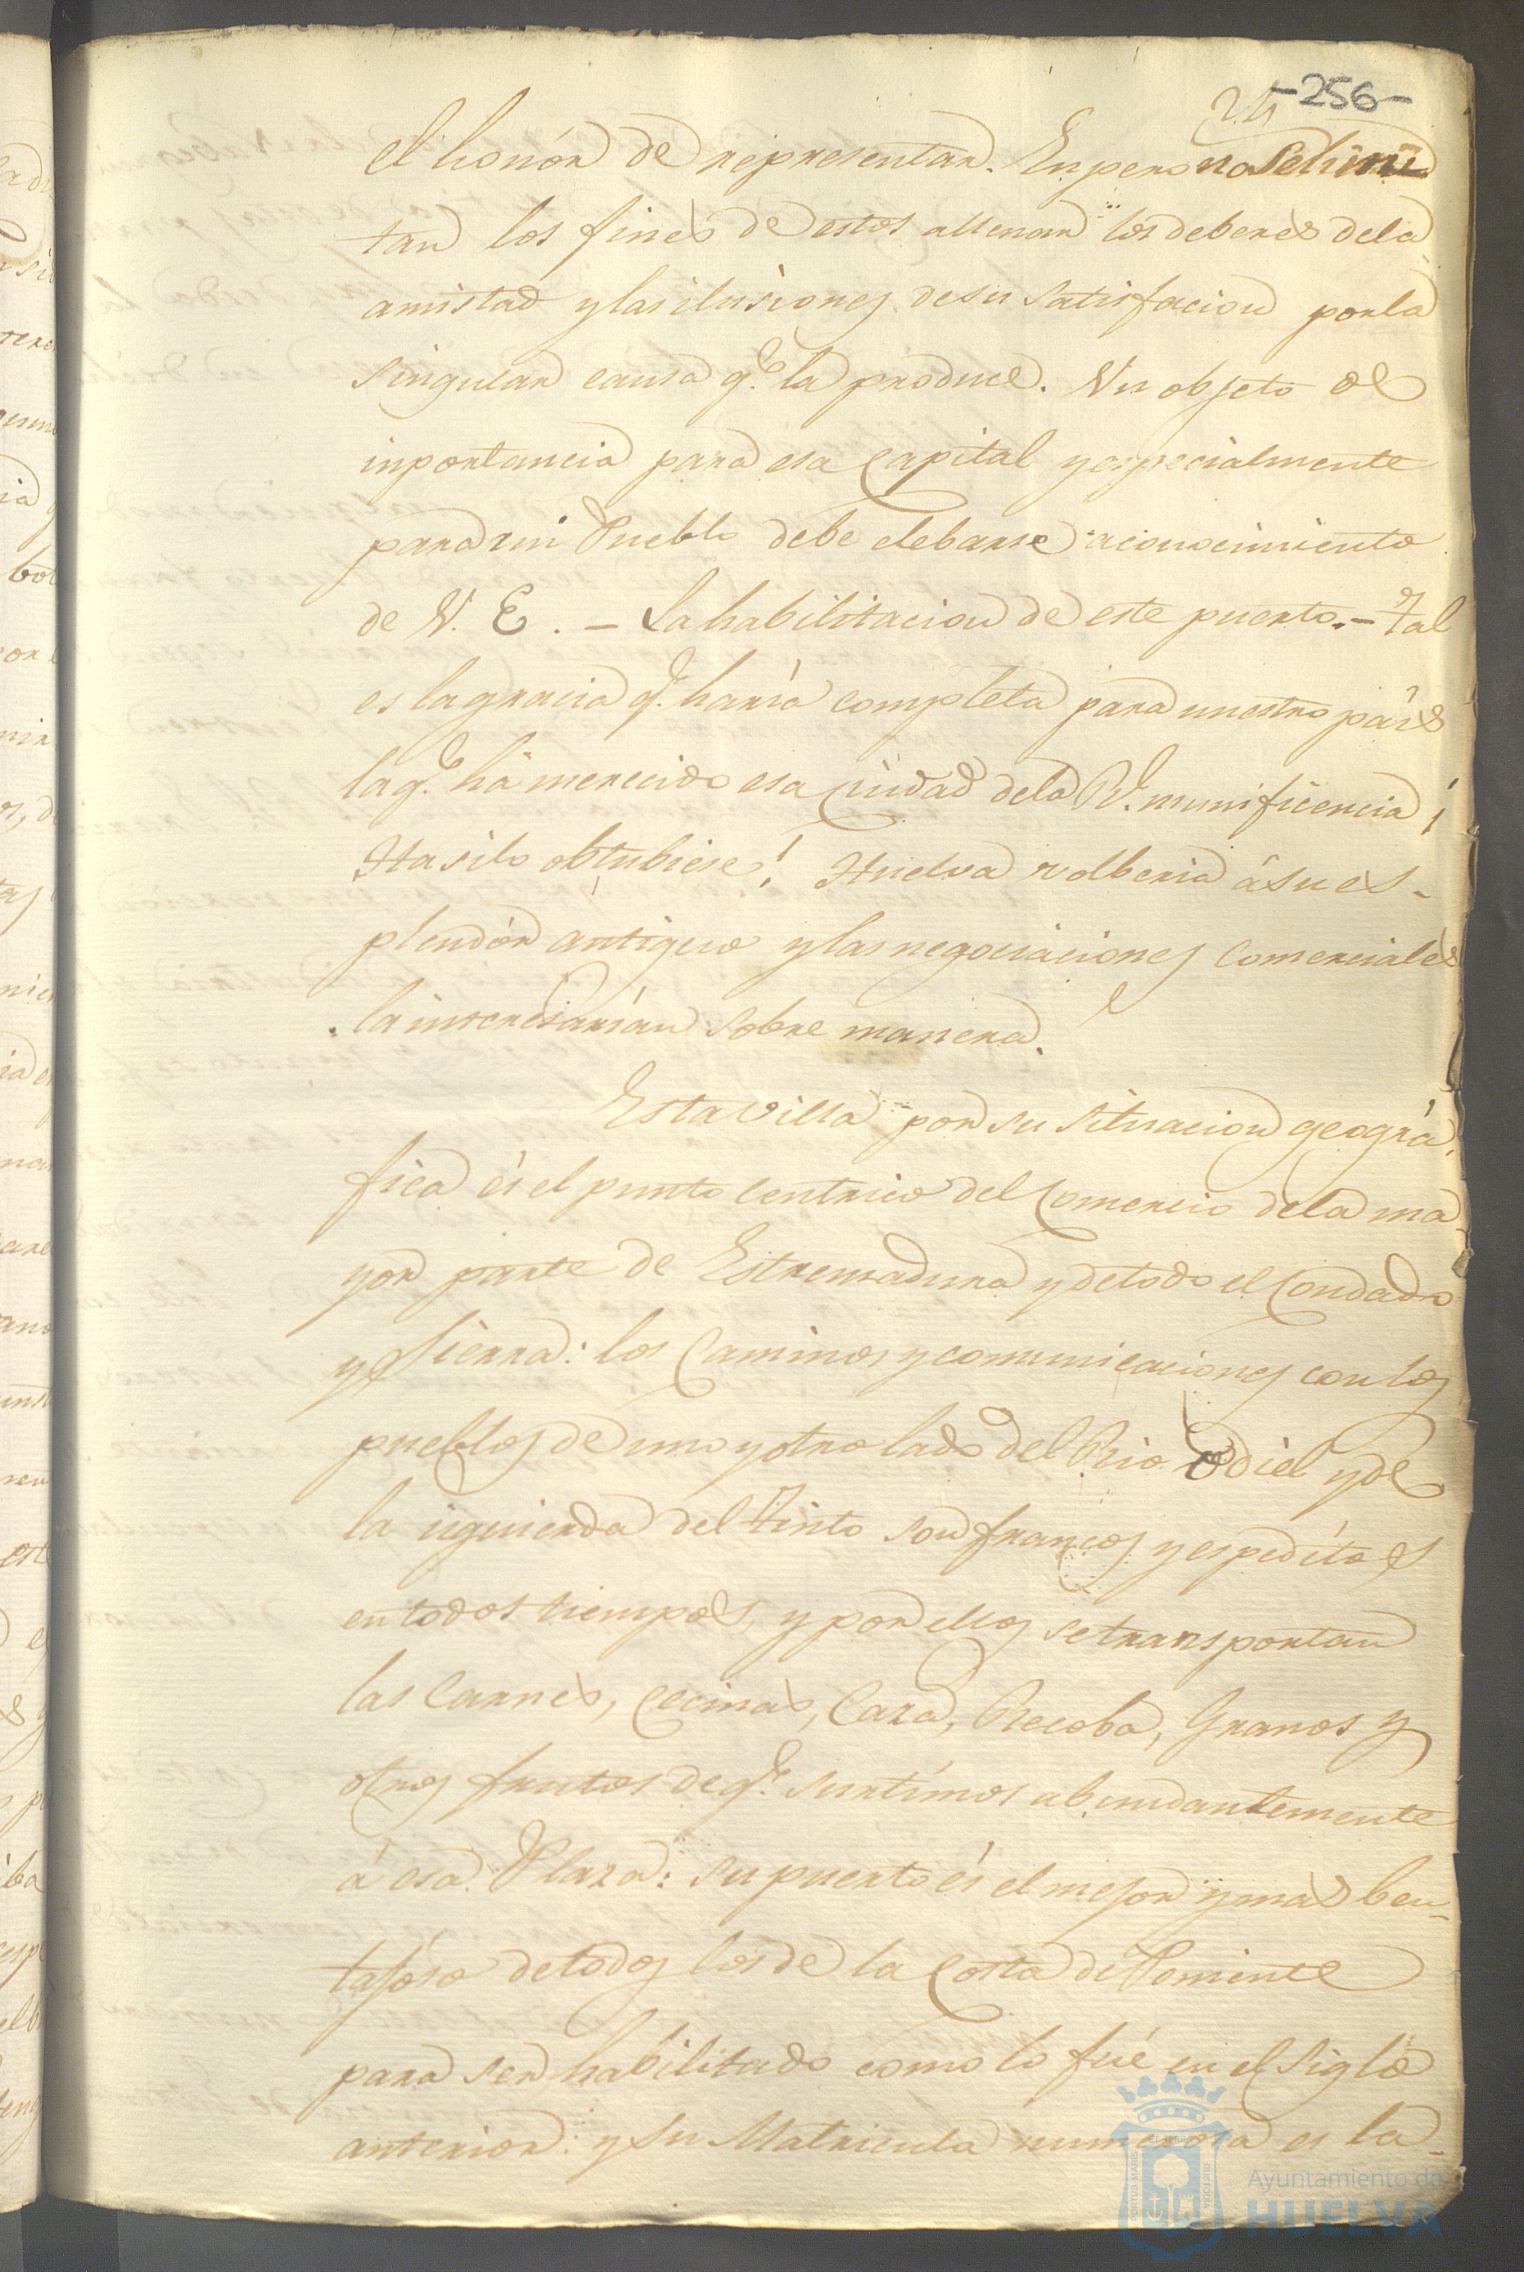 -256-
el honór de representar. En pero no se limi
tan los fines de estos a llenar los deberes de la
amistad y las ilusiones de su satisfacion por la
singular causa q.e la produce. Un objeto de
inportancia para esa Capital y especialmente
para mi Pueblo debe elebarse a conocimiento
de V. E. - La habilitacion de este puerto. - Tal
es la gracia q.e haría completa para nuestro país
la q.e há merecido esa Ciudad de la Rl. munificencia ¡
Ha si lo obtubiese! Huelva volberia á su es-
plendór antiguo y las negociaciones Comerciales
la interesarían sobre manera.
Esta Villa por su situacion geográ-
fica és el punto centrico del Comercio de la ma-
yor parte de Estremadura y de todo el Condado
y Sierra: los Caminos y comunicaciones con los
pueblos de uno y otro lado del Rio Odiel y de
la izquierda del Tinto son francos y espeditos
en todos tiempos, y por ellos se transportan
las Carnes, Cecinas, Caza, Recoba, Granos y
otros frutos de q.e surtimos abundantemente
á esa Plaza: su puerto és el mejor y mas ben-
tajoso de todos los de la Costa de Poniente
para ser habilitado como lo fué en el siglo
anterior: y su Matricula numerosa es la
Ayuntamiento de
HUELVA